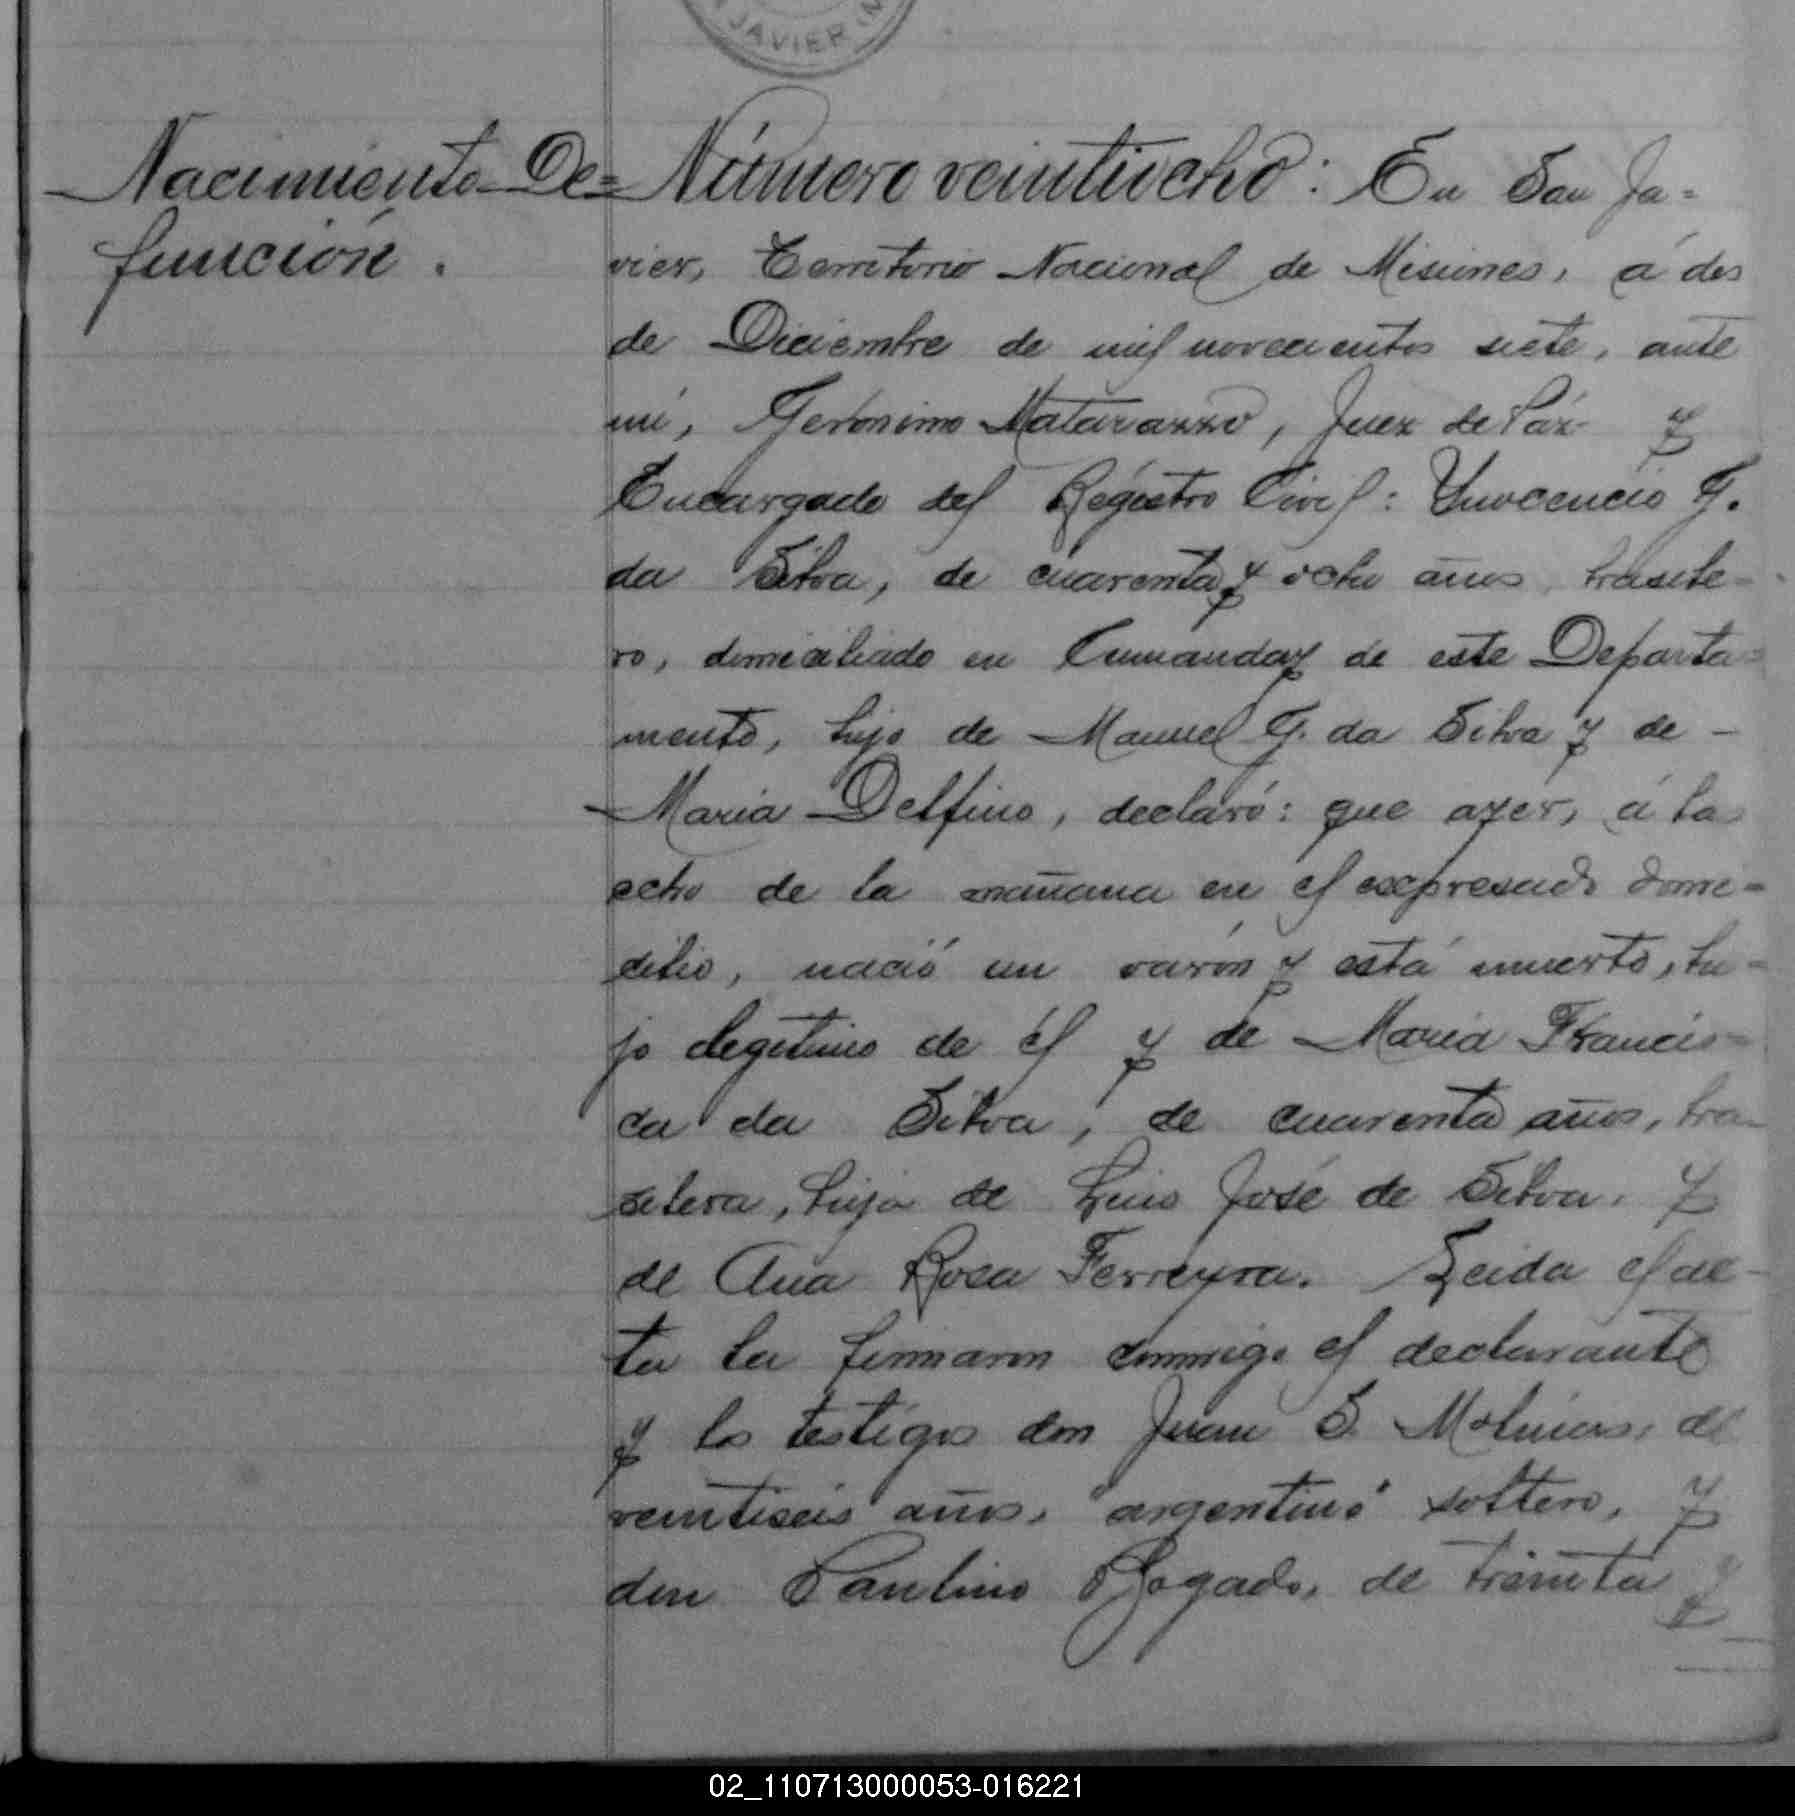 JAVIER
Nacimiento De=
función.
Número veintiocho: En San Ja=
vier, Territorio Nacional de Misiones, á dos
de Diciembre de mil novecientos siete, ante
mí, Gerónimo Matarazzo, Juez de Páz y
Encargado del Régistro Civil: Ynocencio G.
da Silva, de cuarenta y ocho años, brasile=
ro, domiciliado en Cumanday de este Departa=
mento, hijo de Manuel G. da Silva y de -
Maria Delfino, declaró: que ayer, á las
ocho de la mañana en el expresado domi=
cilio, nació un varón y está muerto, hi=
jo legitimo de él y de Maria Francis=
ca da Silva, de cuarenta años, bra-
silera, hija de Lino José de Silva, y
de Ana Rosa Ferreyra. Leida el ac-
ta la firmaron conmigo el declarante
y los testigos don Juan S. Molinas, de
veintiseis años, argentino soltero, y
don Paulino Bogado, de treinta y
02_110713000053-016221